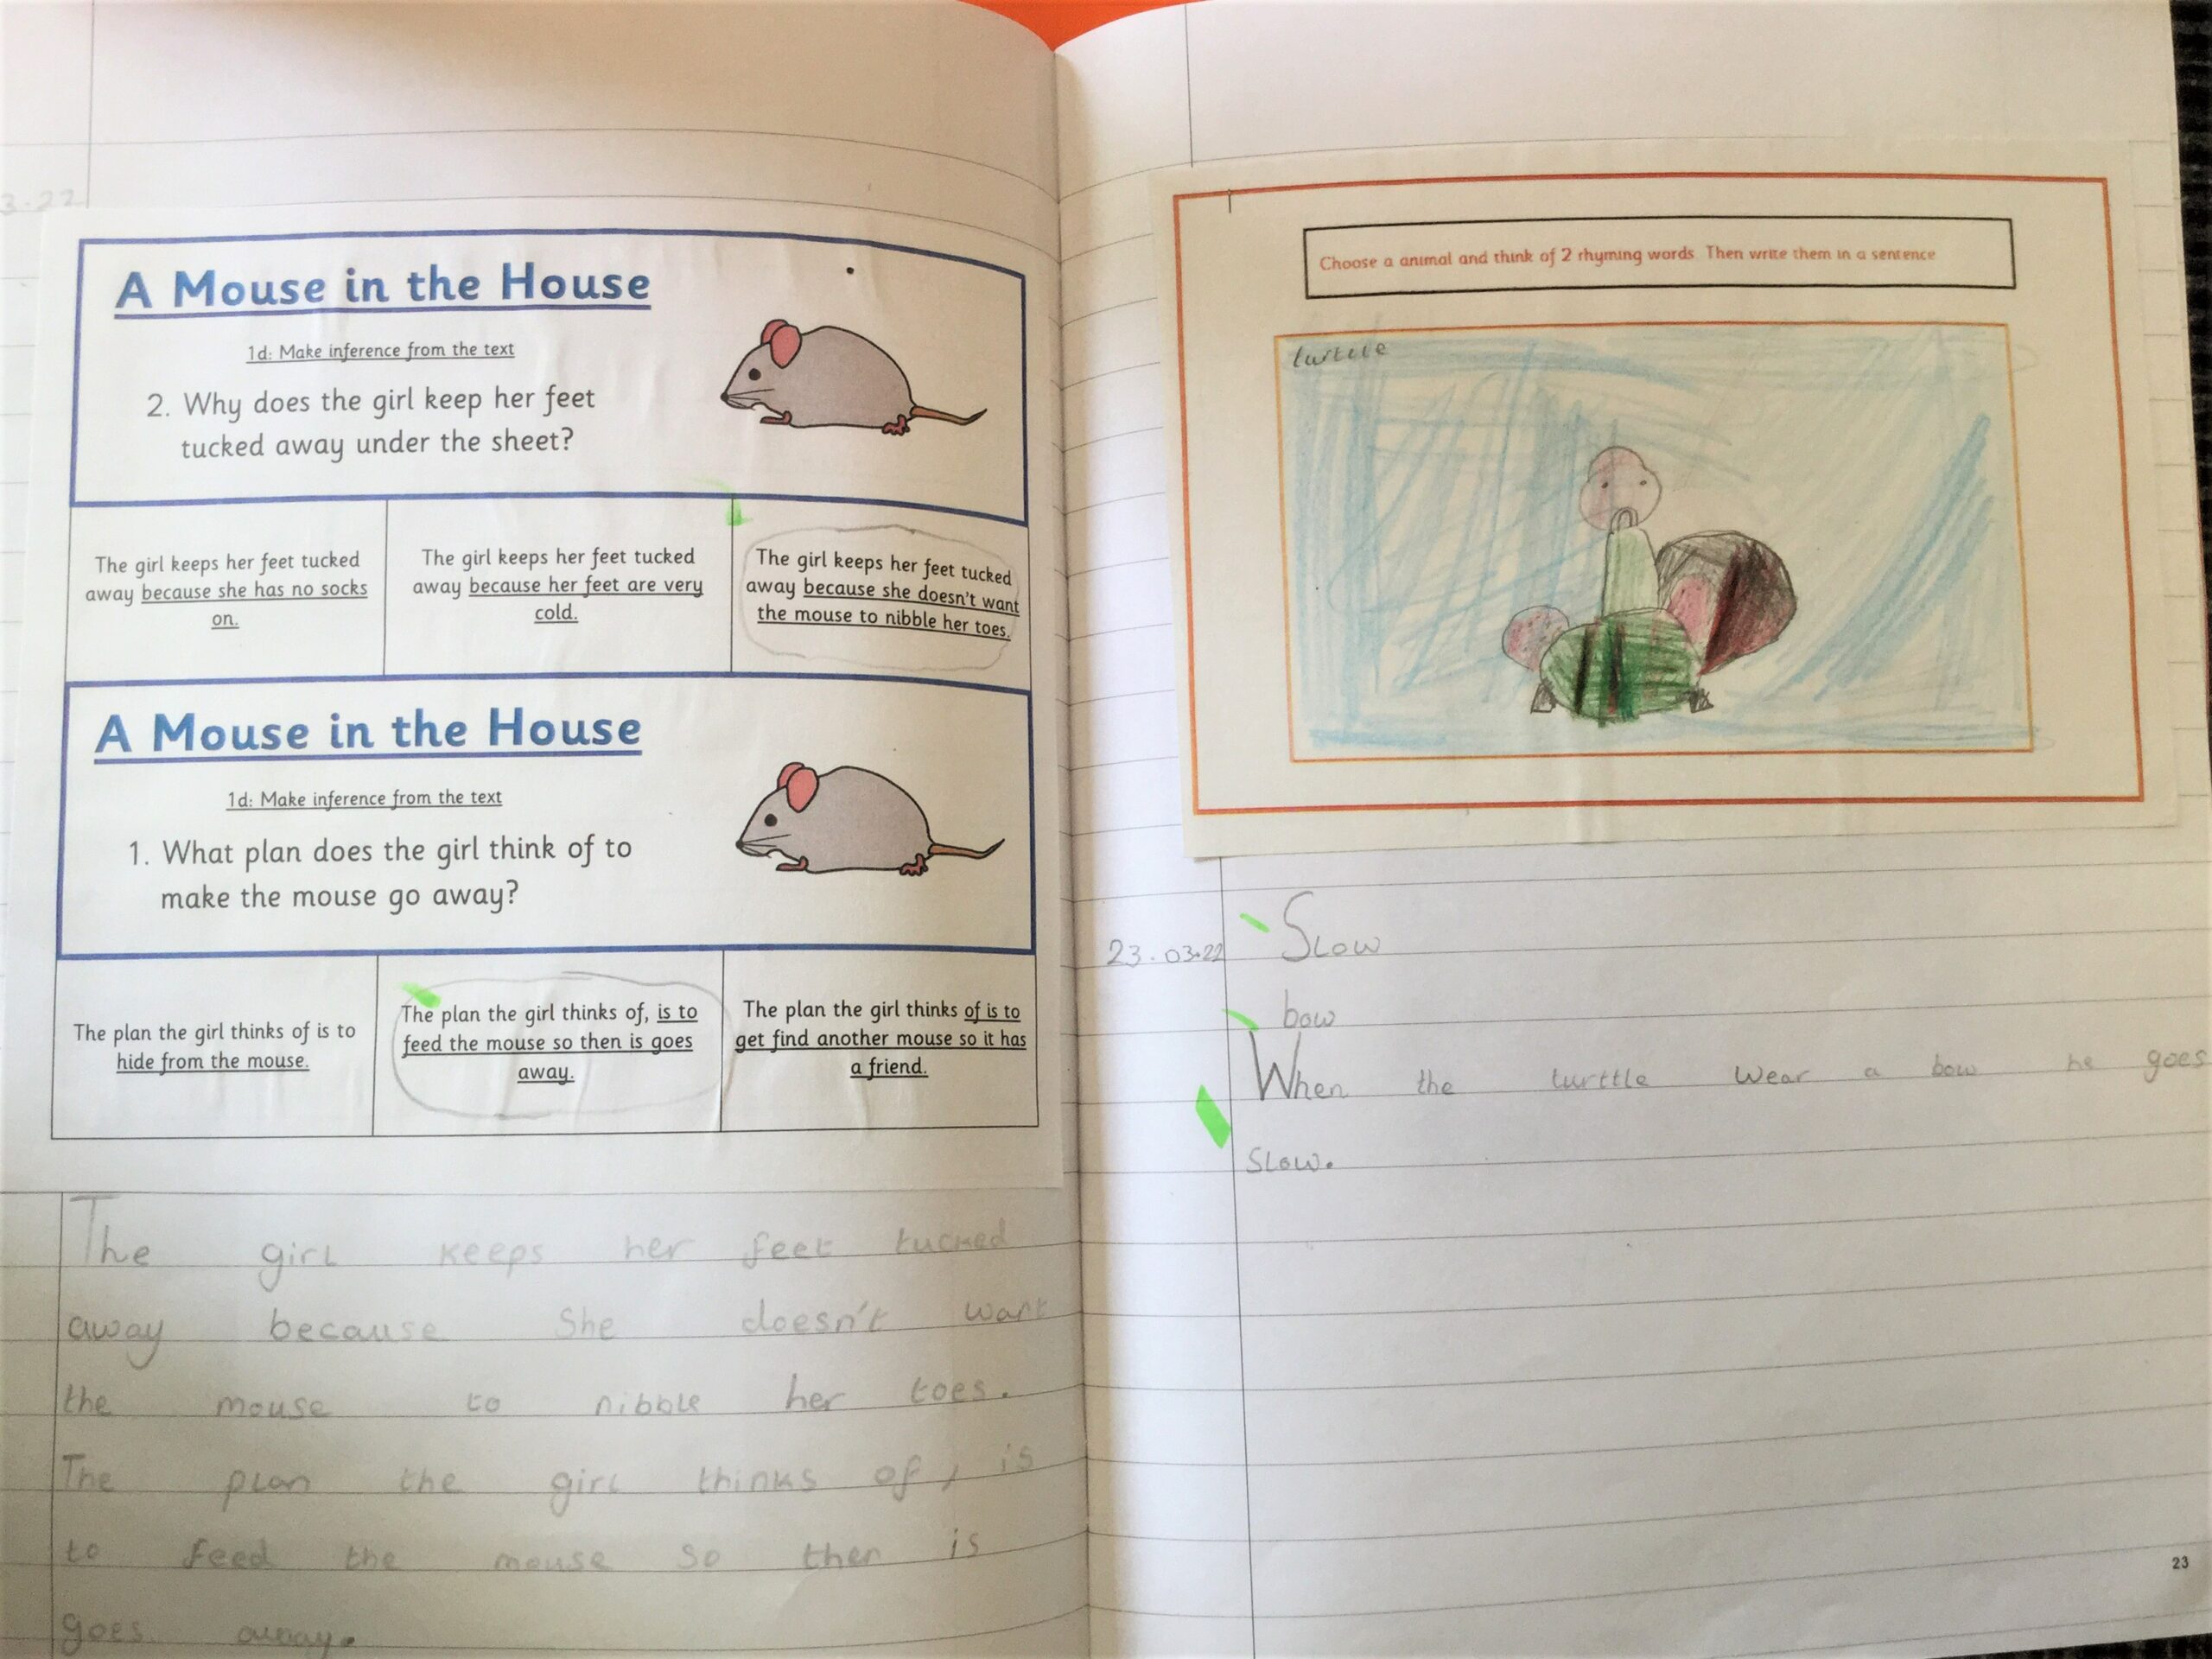 3.22
A Mouse in the House
1d: Make inference from the text
2. Why does the girl keep her feet
tucked away under the sheet?
The girl keeps her feet tucked
away because she has no socks
on.
The girl keeps her feet tucked
away because her feet are very
cold.
The girl keeps her feet tucked
away because she doesn't want
the mouse to nibble her toes.
A Mouse in the House
1d: Make inference from the text
1. What plan does the girl think of to
make the mouse go away?
The plan the girl thinks of is to
hide from the mouse.
The plan the girl thinks of, is to
feed the mouse so then is goes
away.
The plan the girl thinks of is to
get find another mouse so it has
a friend.
The girl keeps her feet tucked
away because She doesn't want
the mouse to nibble her toes.
The plan the girl thinks of, is
to feed the mouse so then is
goes away.
Choose a animal and think of 2 rhyming words. Then write them in a sentence
23.03.22
Slow
bow
When the turttle wear a bow he goes
Slow.
23